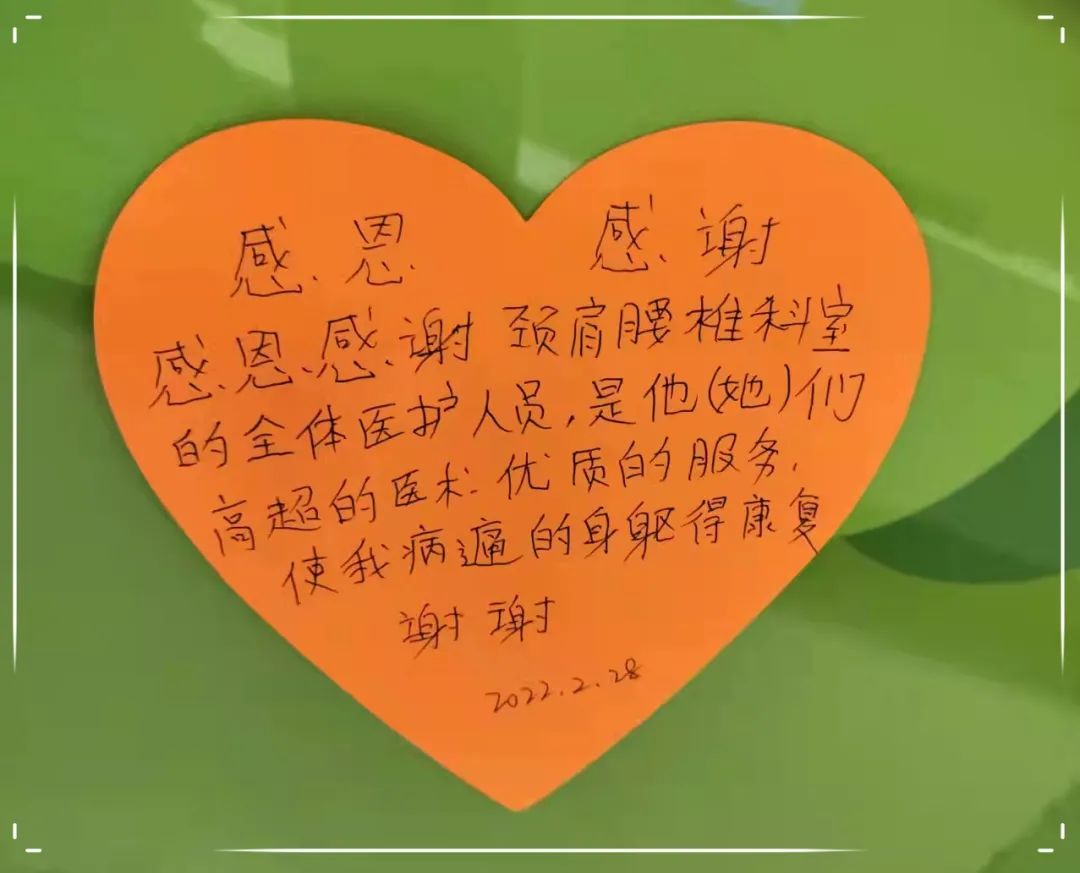 感恩 感谢
感恩感谢颈肩腰椎科室
的全体医护人员,是他(她)们
高超的医术.优质的服务.
使我病逼的身躯得康复
谢谢
2022.2.28